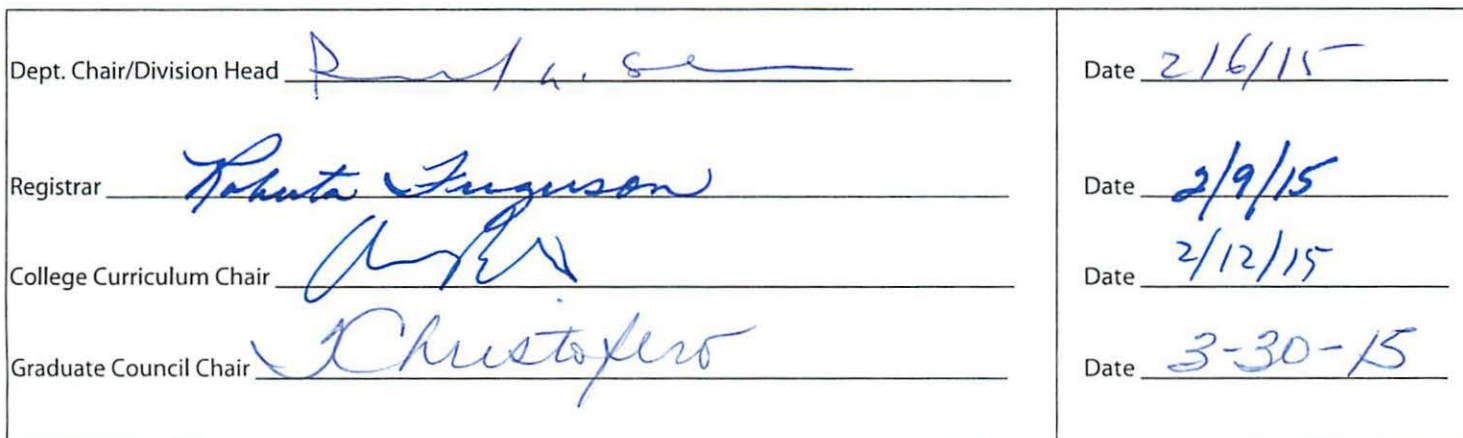 Dept. Chair/Division Head Date 2/6/15
Registrar Roberta Ferguson Date 2/9/15
College Curriculum Chair Date 2/12/15
Graduate Council Chair Christofero Date 3-30-15